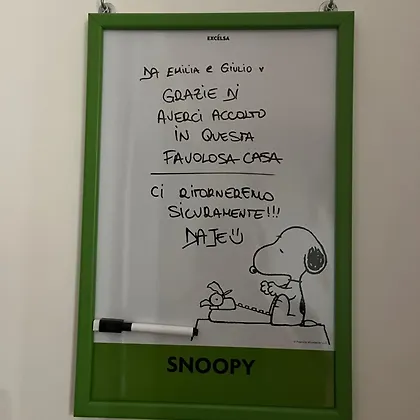 EXCÉLSA
DA EMILIA e GIULIO
GRAZIE DI
AVERCI ACCOLTO
IN QUESTA
FAVOLOSA CASA
CI RITORNEREMO
SICURAMENTE!!!
DAJE
SNOOPY